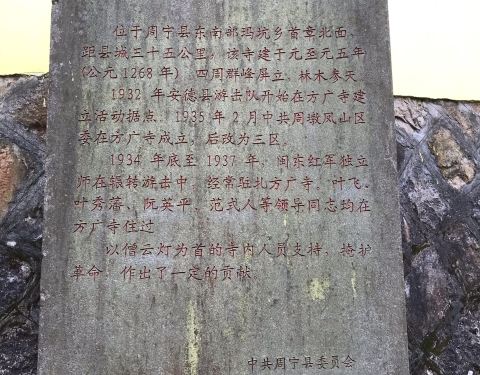 位于周宁县东南部玛坑乡首章北面,
距县城三十五公里。该寺建于元至元五年
(公元1268年)。四周群峰屏立、林木参天。
1932 年安德县游击队开始在方广寺建
立活动据点。1935年2月中共周墩凤山区
委在方广寺成立,后改为三区。
1934 年底至1937年,闽东红军独立
师在辗转游击中,经常驻扎方广寺。叶飞、
叶秀藩、阮英平、范式人等领导同志均在
方广寺住过
以僧云灯为首的寺内人员支持、掩护
革命,作出了一定的贡献
中共周宁县委员会